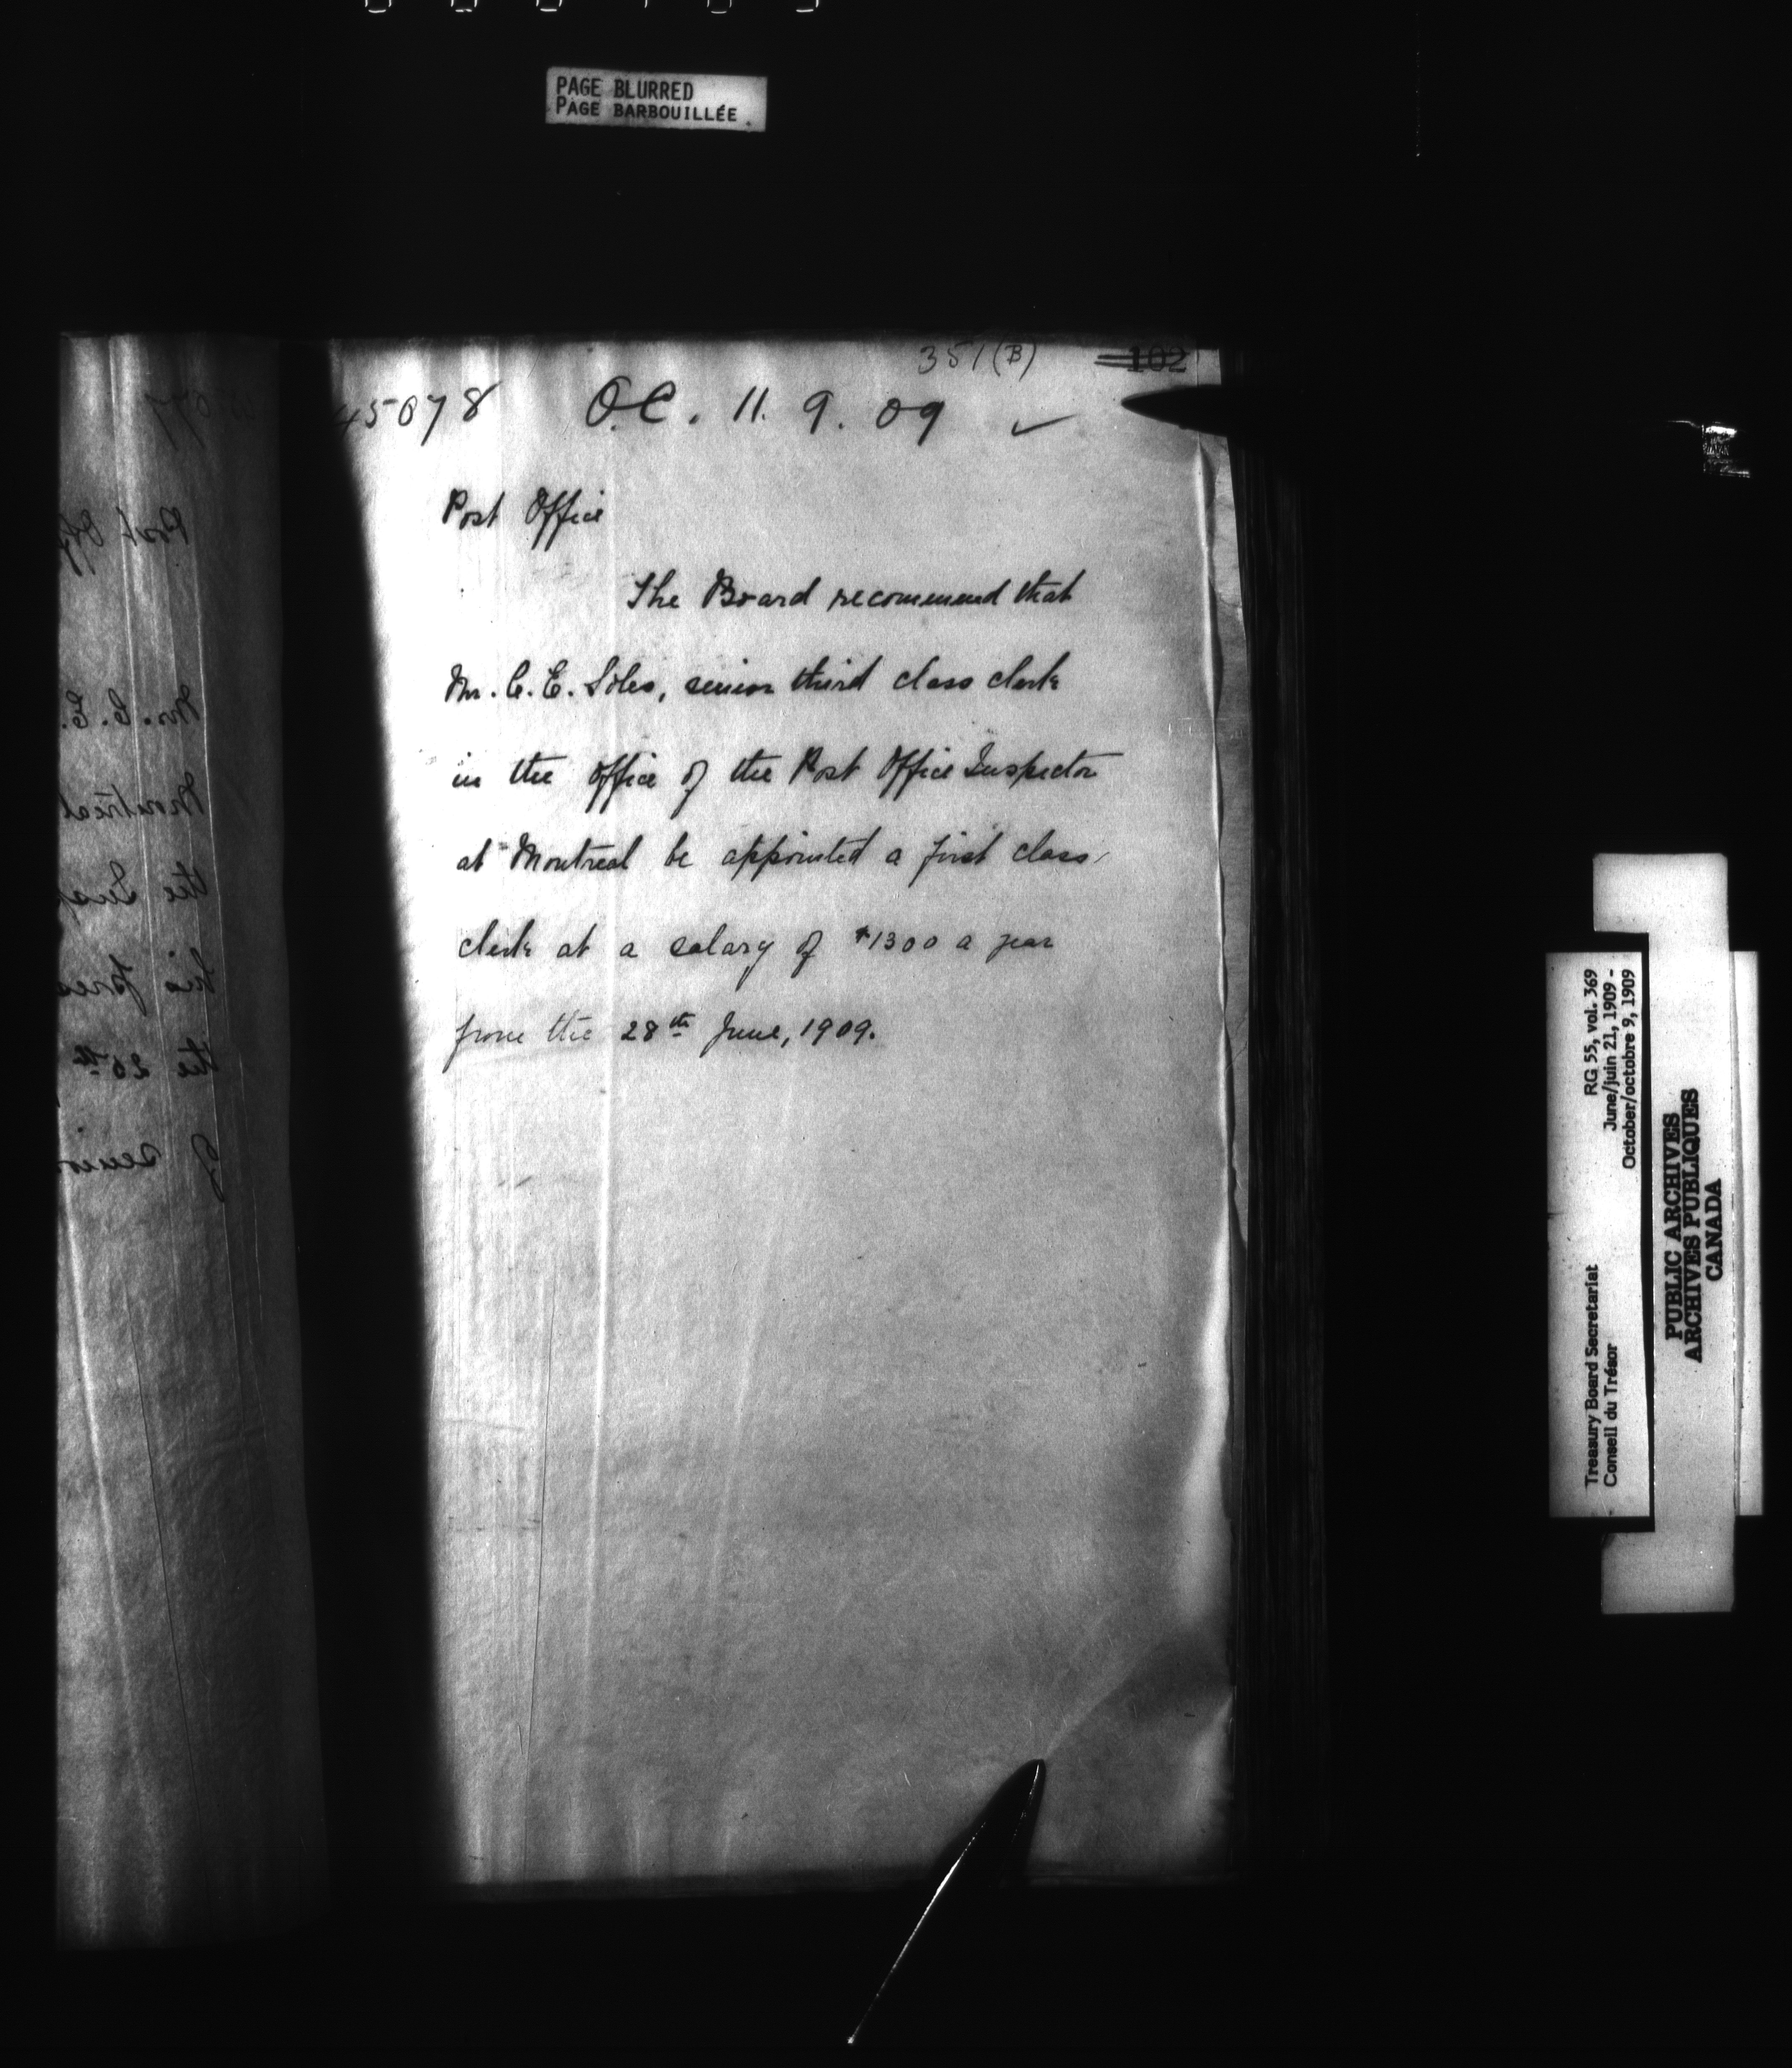 PAGE BLURRED
PAGE BARBOUILLÉE
351(B) 102
45078 O.C. 11. 9. 09 ✓
Post Office
The Board recommend that
Mr. C. E. Stiles, senior third class clerk
in the office of the Post Office Inspector
at Montreal be appointed a first class
clerk at a salary of $1300 a year
from the 28th June, 1909.
Post Off
Mr. C. E.
Montreal
the Insp
his pres
the 20th
of senior
RG 55, vol. 369
June/juin 21, 1909 -
October/octobre 9, 1909
Treasury Board Secretariat
Conseil du Trésor
PUBLIC ARCHIVES
ARCHIVES PUBLIQUES
CANADA